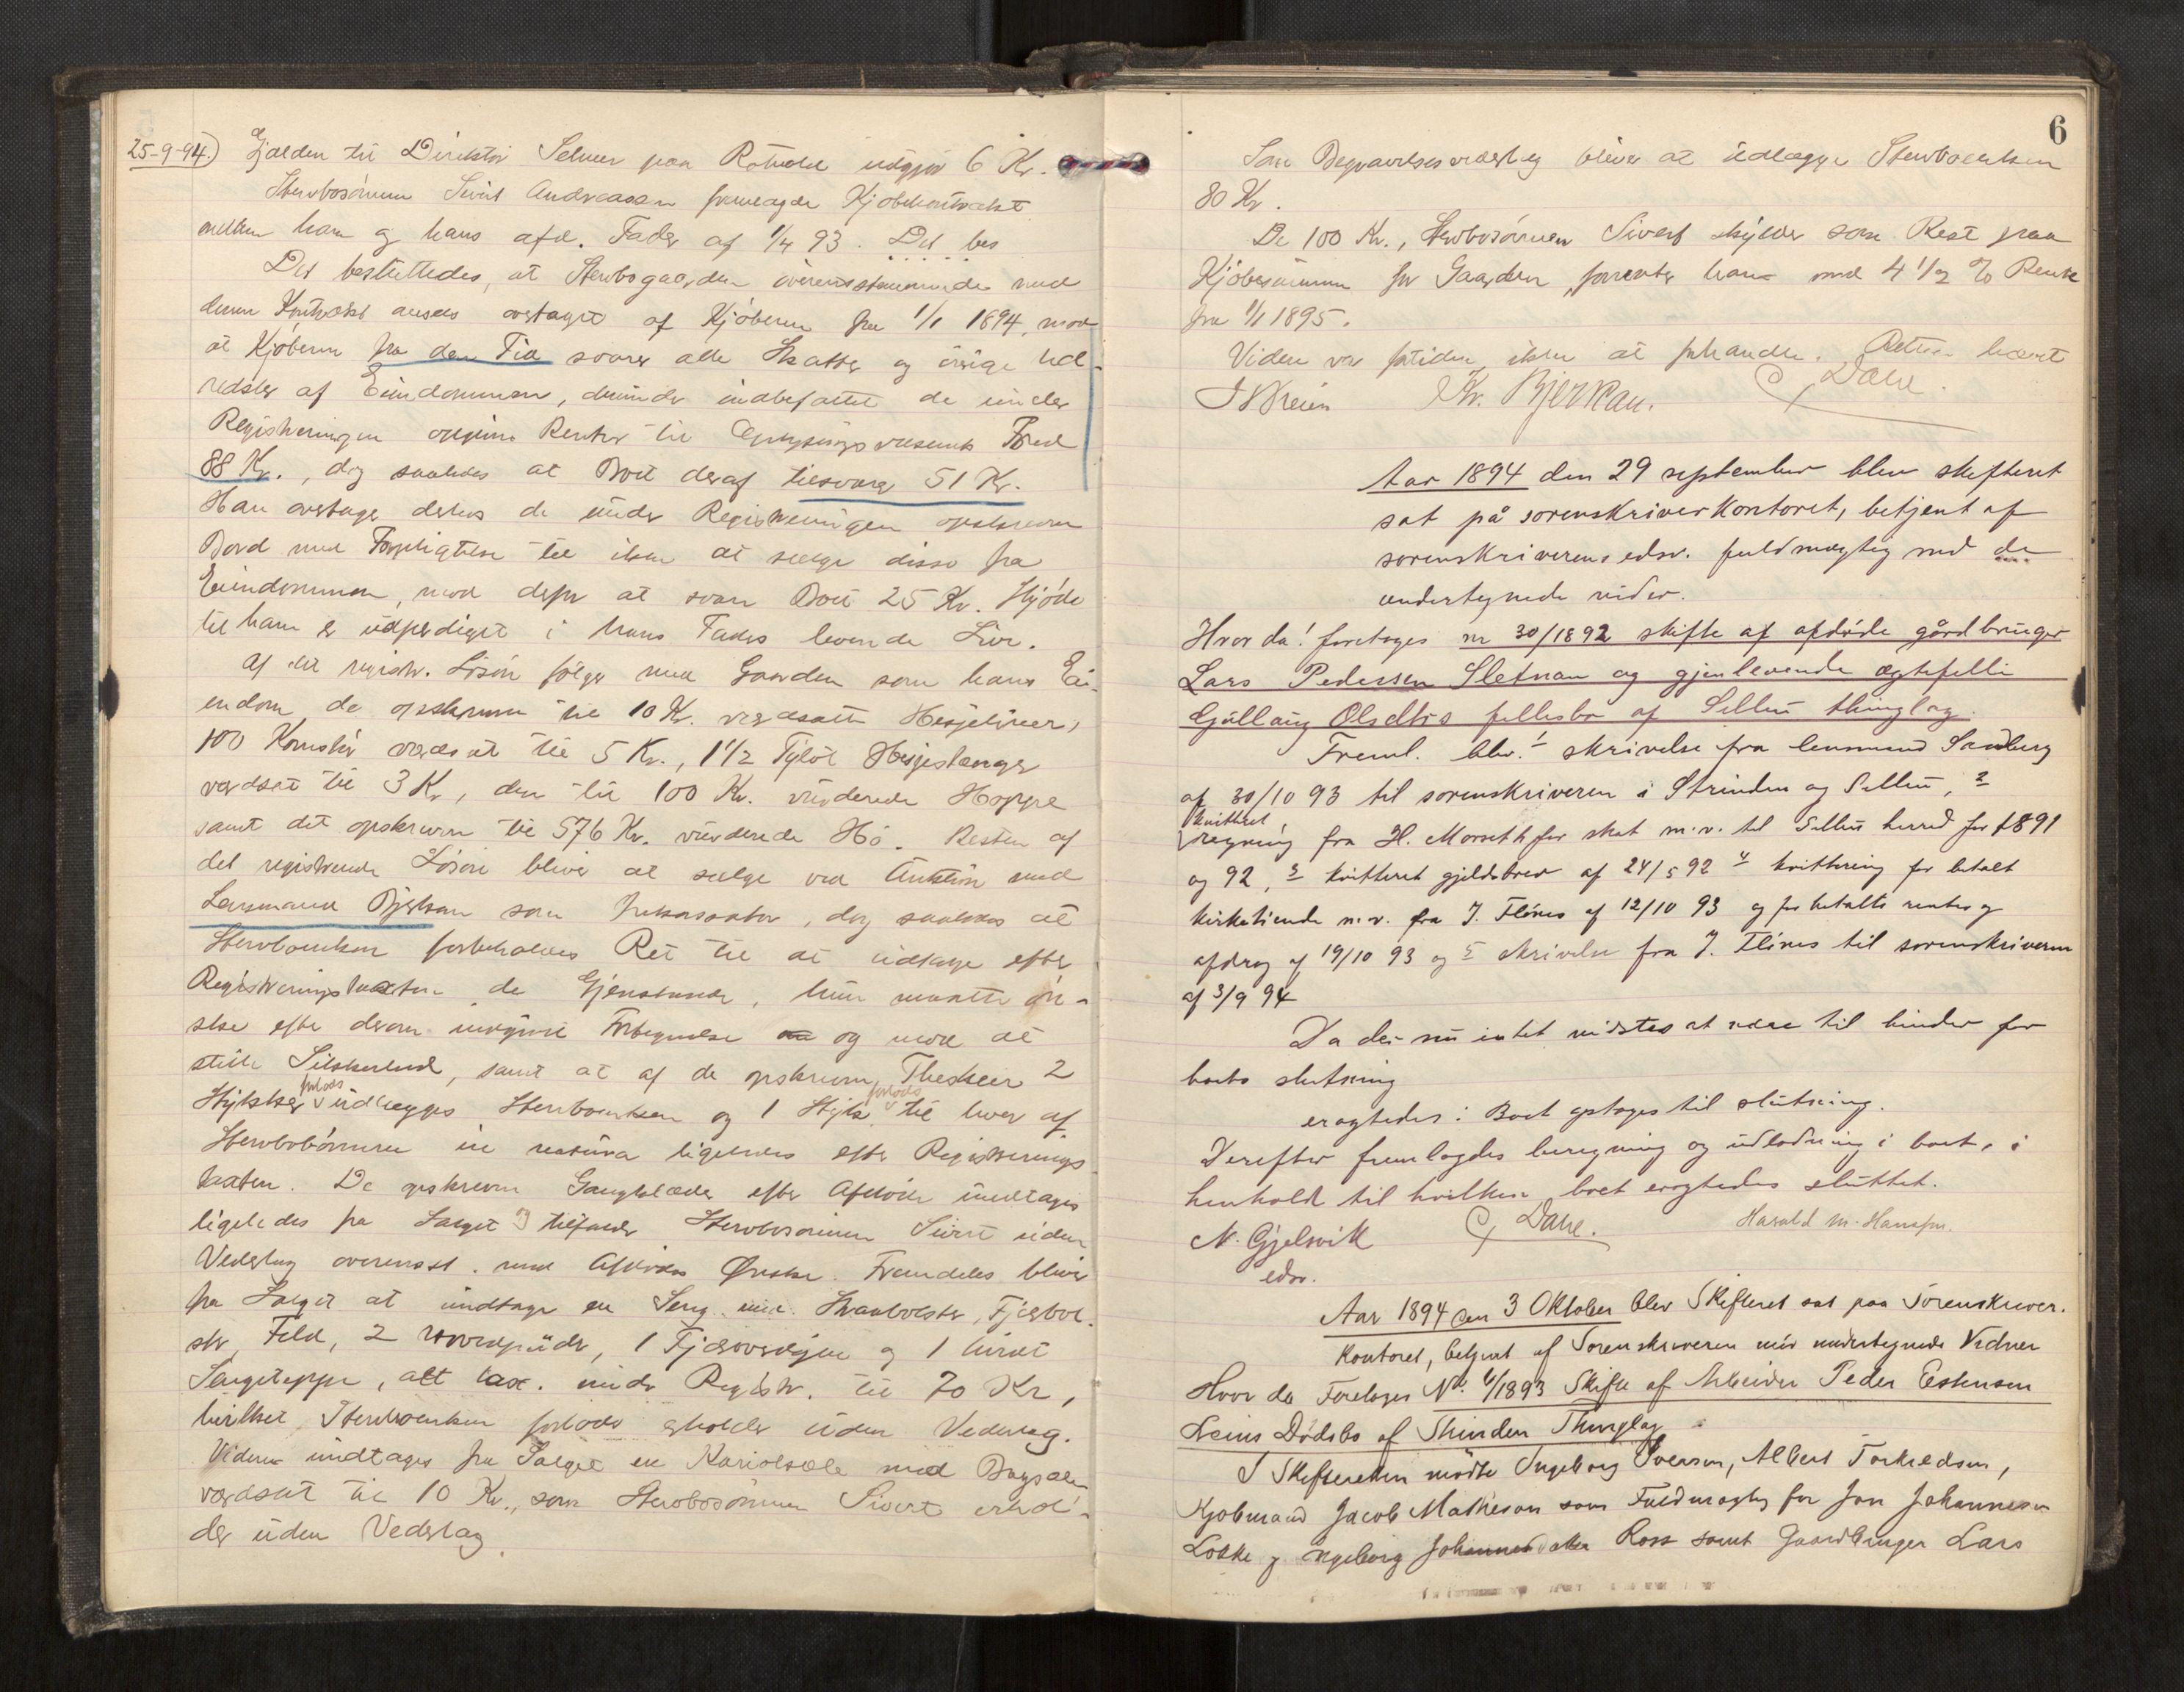 25-9-94.) Gjælden til Direktør Selmer paa Rotvold udgjør 6 Kr.
Stervbosønnen Sivert Andreassen fremlagde Kjøbekontrakt
mellem ham og hans afd. Fader af 1/4 93. Det bes
Det besluttedes, at Stervbogaarden overensstemmende med
denne Kontrakt ansees overtaget af Kjøberen fra 1/1 1894, mod
at Kjøberen fra den Tid svarer alle Skatter og øvrige Ud-
redsler af Eiendommen, derunder indbefattet de under
Registreringen opgivne Renter til Oplysningsvæsenets Fond
88 Kr., dog saaledes at Boet deraf tilsvarer 51 Kr.
Han overtager derhos de under Registreringen opskrevne
Bord med Forpligtelse til ikke at sælge disse fra
Eiendommen, mod derfor at svare Boet 25 Kr. Skjøde
til ham er udfærdiget i hans Faders levende Live.
Af det registr. Løsøre følger med Gaarden som hans Ei-
endom de opskrevne til 10 Kr. værdsatte Hesjeliner,
100 Kornstør værdsat til 5 Kr., 1 1/2 Tylvt Hesjestænger
værdsat til 3 Kr, den til 100 Kr. vurderede Hoppe
samt det opskrevne til 576 Kr. vurderede Hø. Resten af
det registrerede Løsøre bliver at sælge ved Auktion med
Lensmand Bjerkan som Inkassator, dog saaledes at
Stervboenken forbeholdes Ret til at udtage efter
Registreringstaxten de Gjenstande, hun maatte øn-
ske efter derom indgivne Fortegnelse og mod at
stille Sikkerhed, samt at af de opskrevne Theskeer 2
Stykker forlods udlægges Stervboenken og 1 Styk forlods til hver af
Stervbobørnene in natura ligeledes efter Registrerings-
taxten. De opskrevne Gangklæder efter Afdøde undtages
ligeledes fra Salget og tilfalder Stervbosønnen Sivert uden
Vederlag overensst. med Afdødes Ønske. Fremdeles bliver
fra Salget at undtage en Seng med Halmbolster, Fjærbol-
ster, Feld, 2 Hovedpuder, 1 Fjærovérdyne og 1 hvidt
Sengeteppe, alt tax. under Registr. til 70 Kr,
hvilket Stervboenken forlods erholder uden Vederlag.
Videre undtages fra Salget en Kariolsæle med Bogsæler
værdsat til 10 Kr., som Stervbosønnen Sivert erhol-
der uden Vederlag.
6
Som Begravelsesvederlag bliver at udlægge Stervboenken
80 Kr.
De 100 Kr., Stervbosønnen Sivert skylder som Rest paa
Kjøbesummen for Gaarden, forrenter han med 4 1/2 % Rente
fra 1/1 1895.
Videre var fortiden ikke at forhandle. Retten hævet
Kr. Bjerkan. C Dahl.
Aar 1894 den 29 september blev skifteret
sat på sorenskriverkontoret, betjent af
sorenskriverens edsv. fuldmægtig med de
undertegnede vidner.
Hvor da! foretoges nr 30/1892 skifte af afdøde gårdbruger
Lars Pedersen Sletnan og gjenlevende ægtefelle
Gullaug Olsdtrs fellesbo af Selbu thinglag.
Freml. blev: 1 skrivelse fra lensmand Sandberg
af 30/10 93 til sorenskriveren i Strinden og Selbu, 2
kvitteret
regning fra H. Morseth for skat m.v. til Selbu herred for 1891
og 92, 3 kvitteret gjeldsbrev af 24/5 92 4 kvittering for betalt
kirketiende m.v. fra J. Flønes af 12/10 93 og for betalte renter og
afdrag af 19/10 93 og 5 skrivelse fra J. Flønes til sorenskriveren
af 3/9 94
Da der nu intet vidstes at være til hinder for
boets slutning
eragtedes: Boet optages til slutning.
Derefter fremlagdes beregning og udlodning i boet, i
henhold til hvilken boet eragtedes sluttet.
N. Gjelsvik C Dahl. Harald M. Hansen.
edsv.
Aar 1894 den 3 Oktober blev Skifteret sat paa Sorenskriver-
kontoret, betjent af Sorenskriveren med undertegnede Vidner
Hvor da Foretoges No. 4/1893 Skifte af Arbeider Peder Estensen
Leins Dødsbo af Strinden Thinglag
I Skifteretten mødte Ingeborg Iversen, Albert Torkildsen,
Kjøbmand Jacob Mathesen som Fuldmægtig for Jon Johannesen
Løkke og Ingeborg Johannesdatter Ross samt Gaardbruger Lars